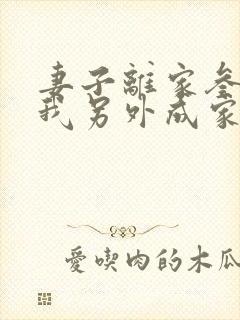 妻子離家參
我另外成家
愛喫肉的木瓜